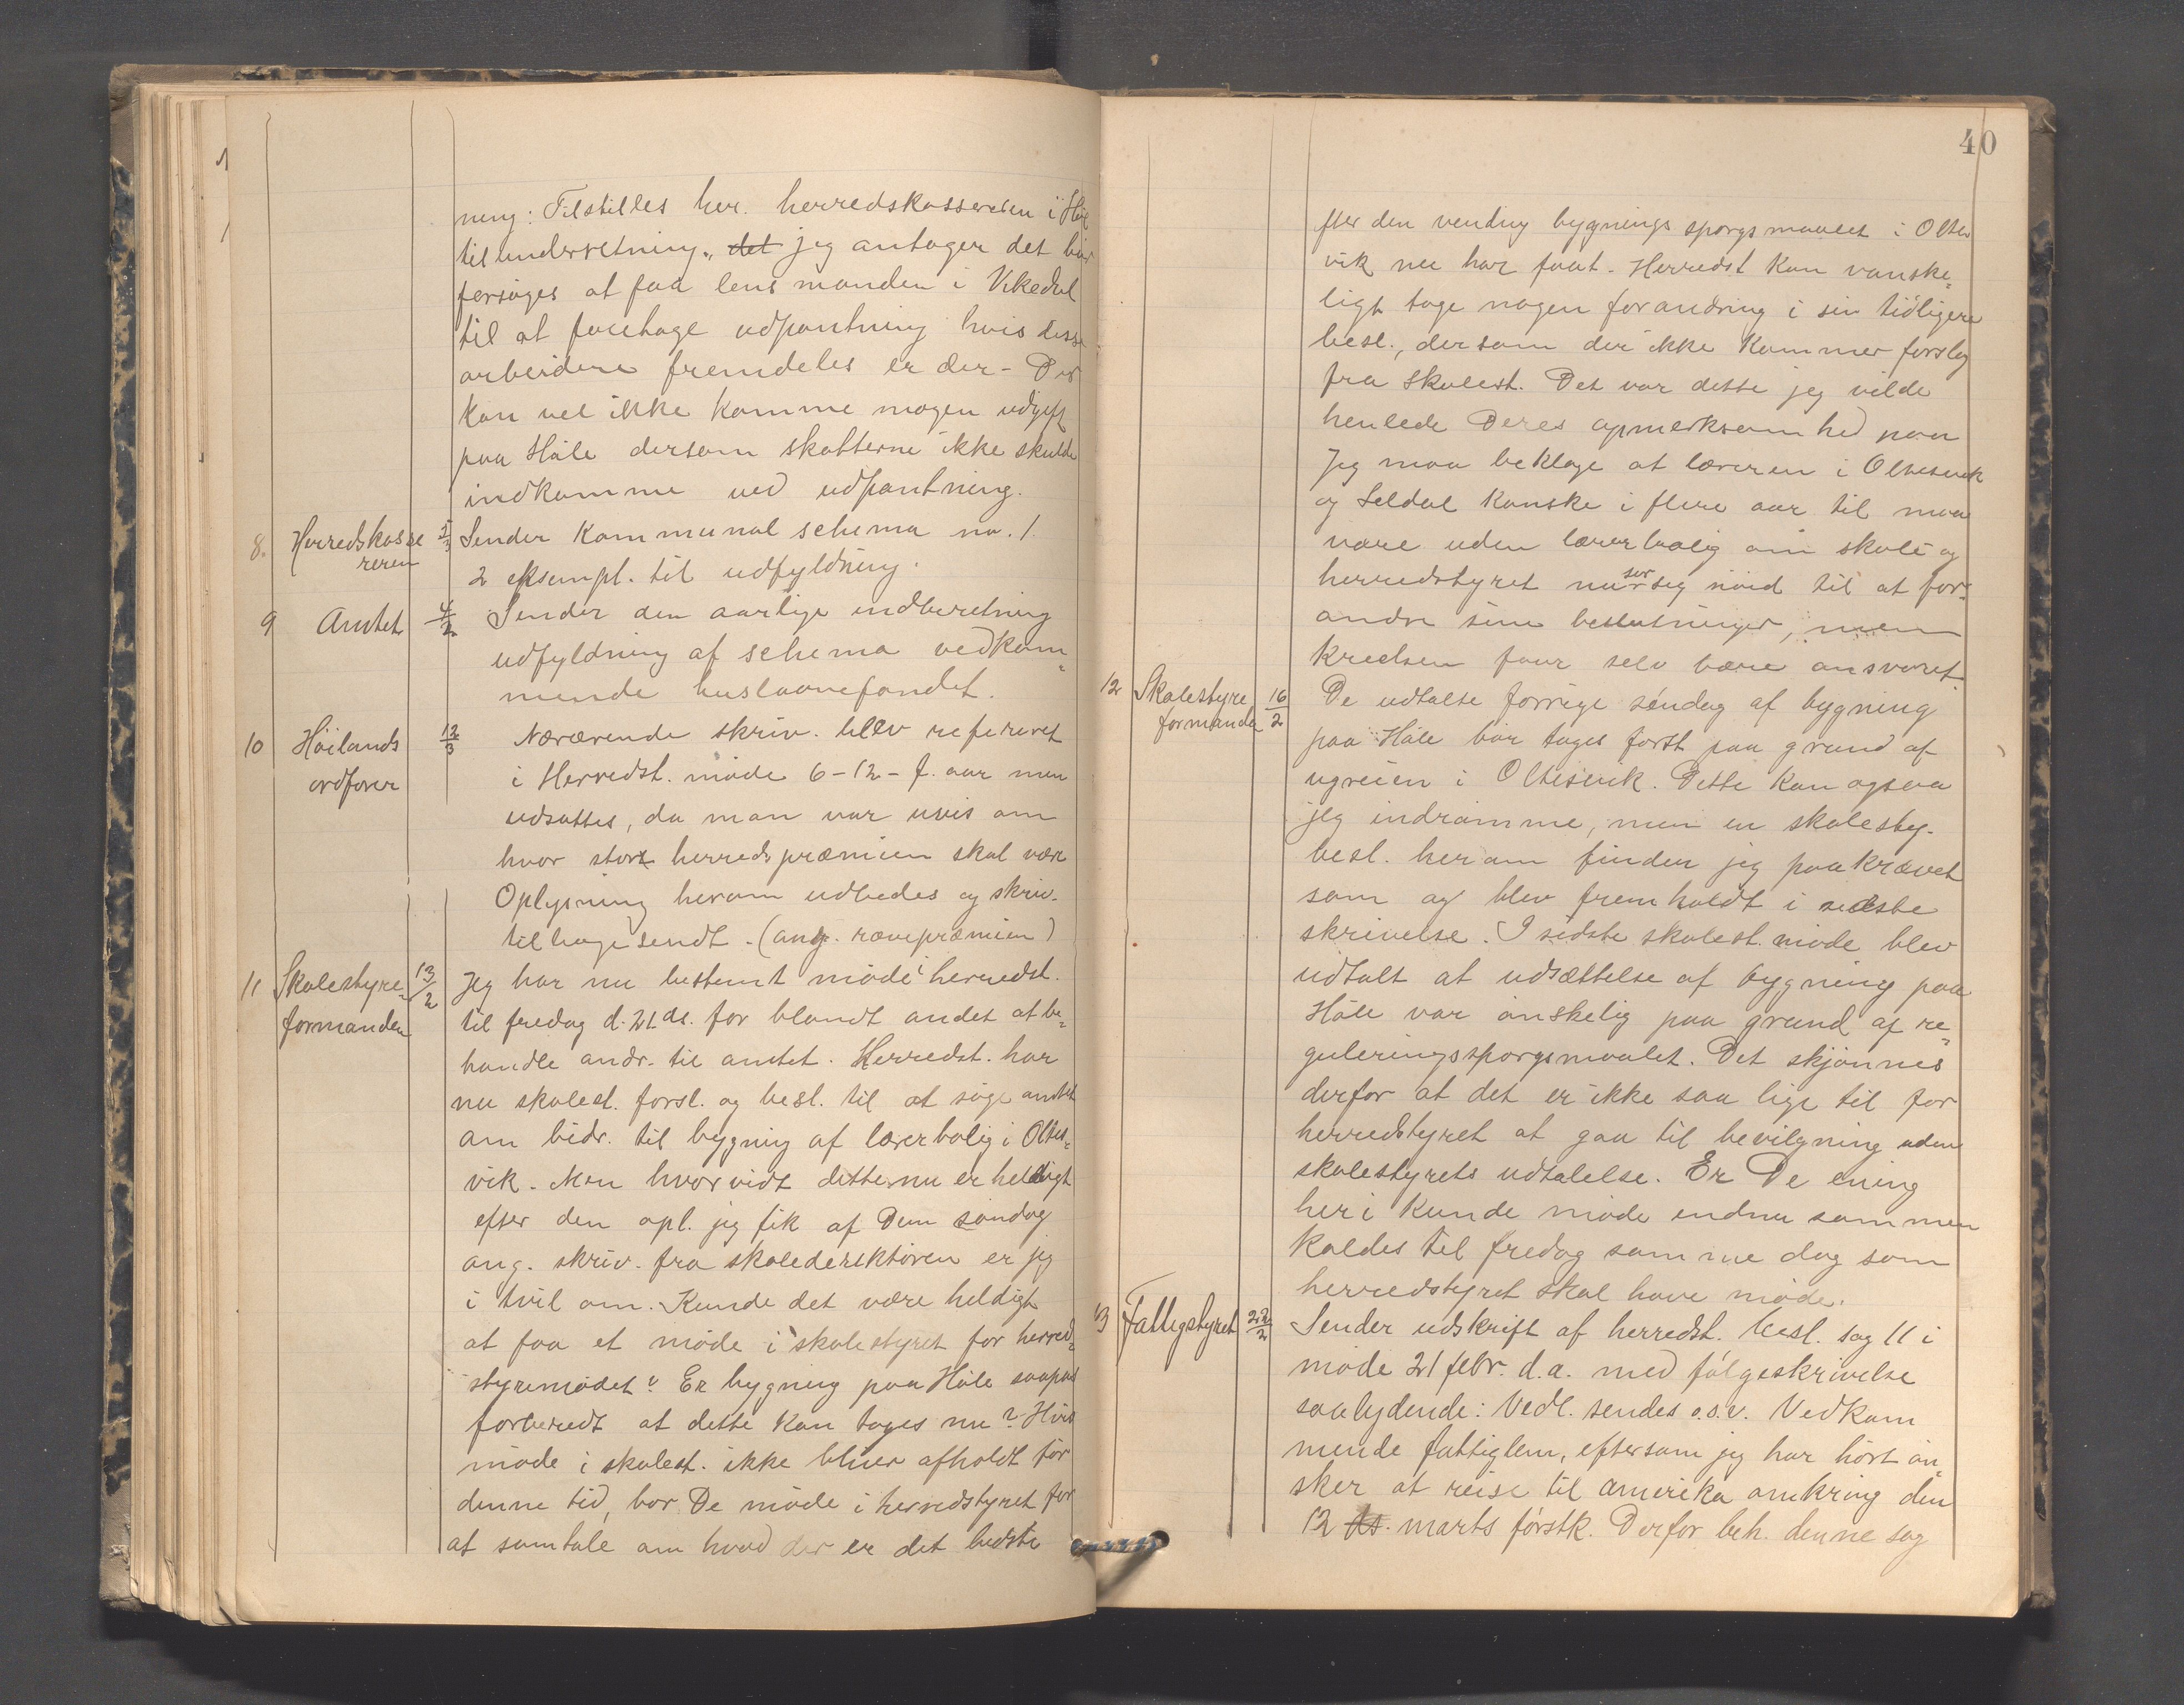 ning: Tilstilles her. herredskassereren i Høle
til underretning. det jeg antager det bør
forsøges at faa lensmanden i Vikedal
til at foretage udpantning hvis disse
arbeidere fremdeles er der - Der
kan vel ikke komme nogen udgift
paa Høle dersom skatterne ikke skulde
indkomme ved udpantning.
8. Herredskasse
reren
Sender Kommunal schema no. 1.
2 eksempl. til udfyldning.
9 Amtet 4/2 Sender den aarlige indberetning
udfyldning af schema vedkom=
mende huslaanefondet.
10 Høilands
ordfører
12/3 Nærværende skriv. blev refereret
i Herredst. møde 6-12- f. aar men
udsattes, da man var uvis om
hvor stor herredspræmien skal være
Oplysning herom udbedes og skriv.
tilbagesendt. (ang. rævepræmien)
11 Skolestyre-
formanden
13/2 Jeg har nu bestemt møde i herredst.
til fredag d. 21 ds. for blandt andet at be=
handle andr. til amtet. Herredst. har
nu skolest. forsl. og besl. til at søge amtet
om bidr. til bygning af lærerbolig i Oltes=
vik. Men hvorvidt dette nu er heldigt
efter den opl. jeg fik af Dem søndag
ang. skriv. fra skoledirektøren er jeg
i tvil om. Kunde det være heldigt
at faa et møde i skolestyret før herred=
styremødet? Er bygning paa Høle saapas
forberedt at dette kan tages nu? Hvis
møde i skolest. ikke bliver afholdt før
denne tid, bør De møde i herredstyret for
at samtale om hvad der er det bedste
40
fter den vending bygnings spørgsmaalet i Oltes
vik nu har faat. Herredst kan vanske=
ligt tage nogen forandring i sin tidligere
besl., dersom der ikke kommer forslag
fra skolest. Det var dette jeg vilde
henlede Deres opmerksomhed paa
Jeg maa beklage at læreren i Oltesvik
og Seldal kanske i flere aar til maa
være uden lærerbolig om skole og
herredstyret nu ser sig nød til at for=
andre sine beslutninger, men
Kredsen faar selv bære ansvaret.
12 Skolestyre
formanden
16/2 De udtalte forrige søndag af bygning
paa Høle bør tages først paa grund af
ugreien i Oltesvik. Dette kan ogsaa
jeg indrømme, men en skolesty.
besl. herom finder jeg paakrævet
som og blev fremholdt i sidste
skrivelse. I sidste skolest. møde blev
udtalt at udsættelse af bygning paa
Høle var ønskelig paa grund af re=
guleringsspørgsmaalet. Det skjønnes
derfor at det er ikke saa lige til for
herredstyret at gaa til bevilgning uden
skolestyrets udtalelse. Er De enig
heri kunde møde endnu sammen
kaldes til fredag samme dag som
herredstyret skal have møde.
13 Fattigstyret 22/2 Sender udskrift af herredst. besl. sag 11 i
møde 21 febr. d.a. med følgeskrivelse
saalydende: Vedl. sendes o.s.v. Vedkom
mende fattiglem, eftersom jeg har hørt øn=
sker at reise til Amerika omkring den
12 ds. marts førstk. Derfor beh. denne sag